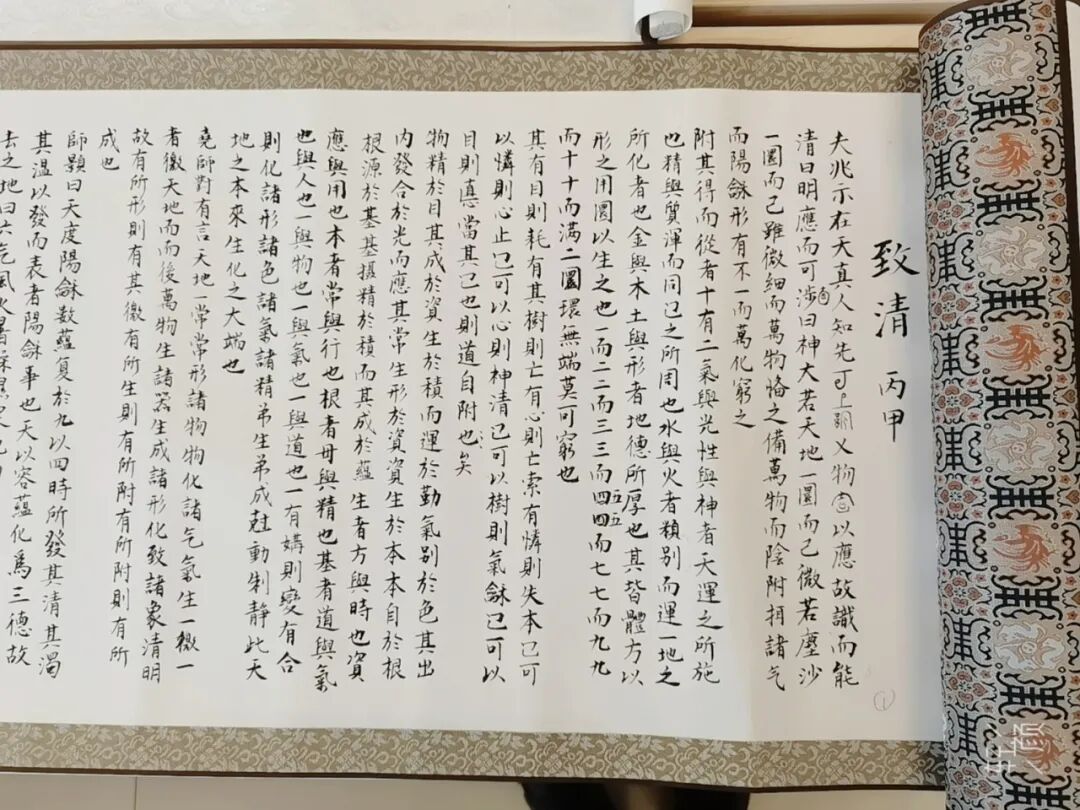 致清 丙甲
夫兆示在天真人知先可上詷乂物以應故識而能
清曰明應而可涉自曰神大若天地一圜而己微若塵沙
一圜而己雖微細而萬物俻之備萬物而陰附抦諸气
而陽龢形有不一而萬化窮之
附其得而從者十有二氣與光性與神者天運之所施
也精與質渾而同己之所用也水與火者類别而運一地之
所化者也金與木土與形者地德所厚也其皆體方以
形之用圜以生之也一而二二而三三而四四五五而七七而九九
而十十而满二圜環無端莫可窮也
其有目則耗有其樹則亡有心則亡索有憐則失本己可
以憐則心止己可以心則神清己可以樹則氣龢己可以
目則真當其己也則道自附也矣
物精於目其成於資生於積而運於勤氣别於色其出
内發合於光而應其常生形於資資生於本本自於根
根源於基基摄精於積而其成於蘊生者方與時也資
應與用也本者常與行也根者毌與精也基者道與氣
也與人也一與物也一與氣也一與道也一有媾則變有合
則化諸形諸色諸氣諸精弟生弟成兡動制静此天
地之本來生化之大端也
堯師對有言天地一常常形諸物物化諸气氣生一徵一
者徵天地而而後萬物生諸器生成諸形化致諸象清明
故有所形則有其徵有所生則有所附有所附則有所
成也
師顥曰天度陽龢数蘊复于九以四時所發其清其濁
其温以發而表者陽龢事也天以容蘊化爲三德故
去之地曰六气風火暑
①